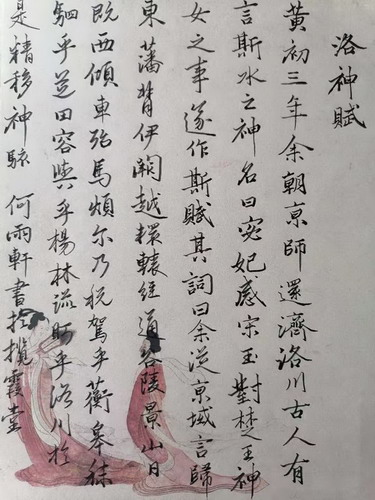 洛神賦
黃初三年余朝京師還濟洛川古人有
言斯水之神名曰宓妃感宋玉對楚王神
女之事遂作斯賦其詞曰余從京域言歸
東藩背伊闕越轘轅經通谷陵景山日
既西傾車殆馬煩尔乃税駕乎蘅皋秣
駟乎芝田容與乎楊林流眄乎洛川於
是精移神駭 何雨軒書於攬霞堂